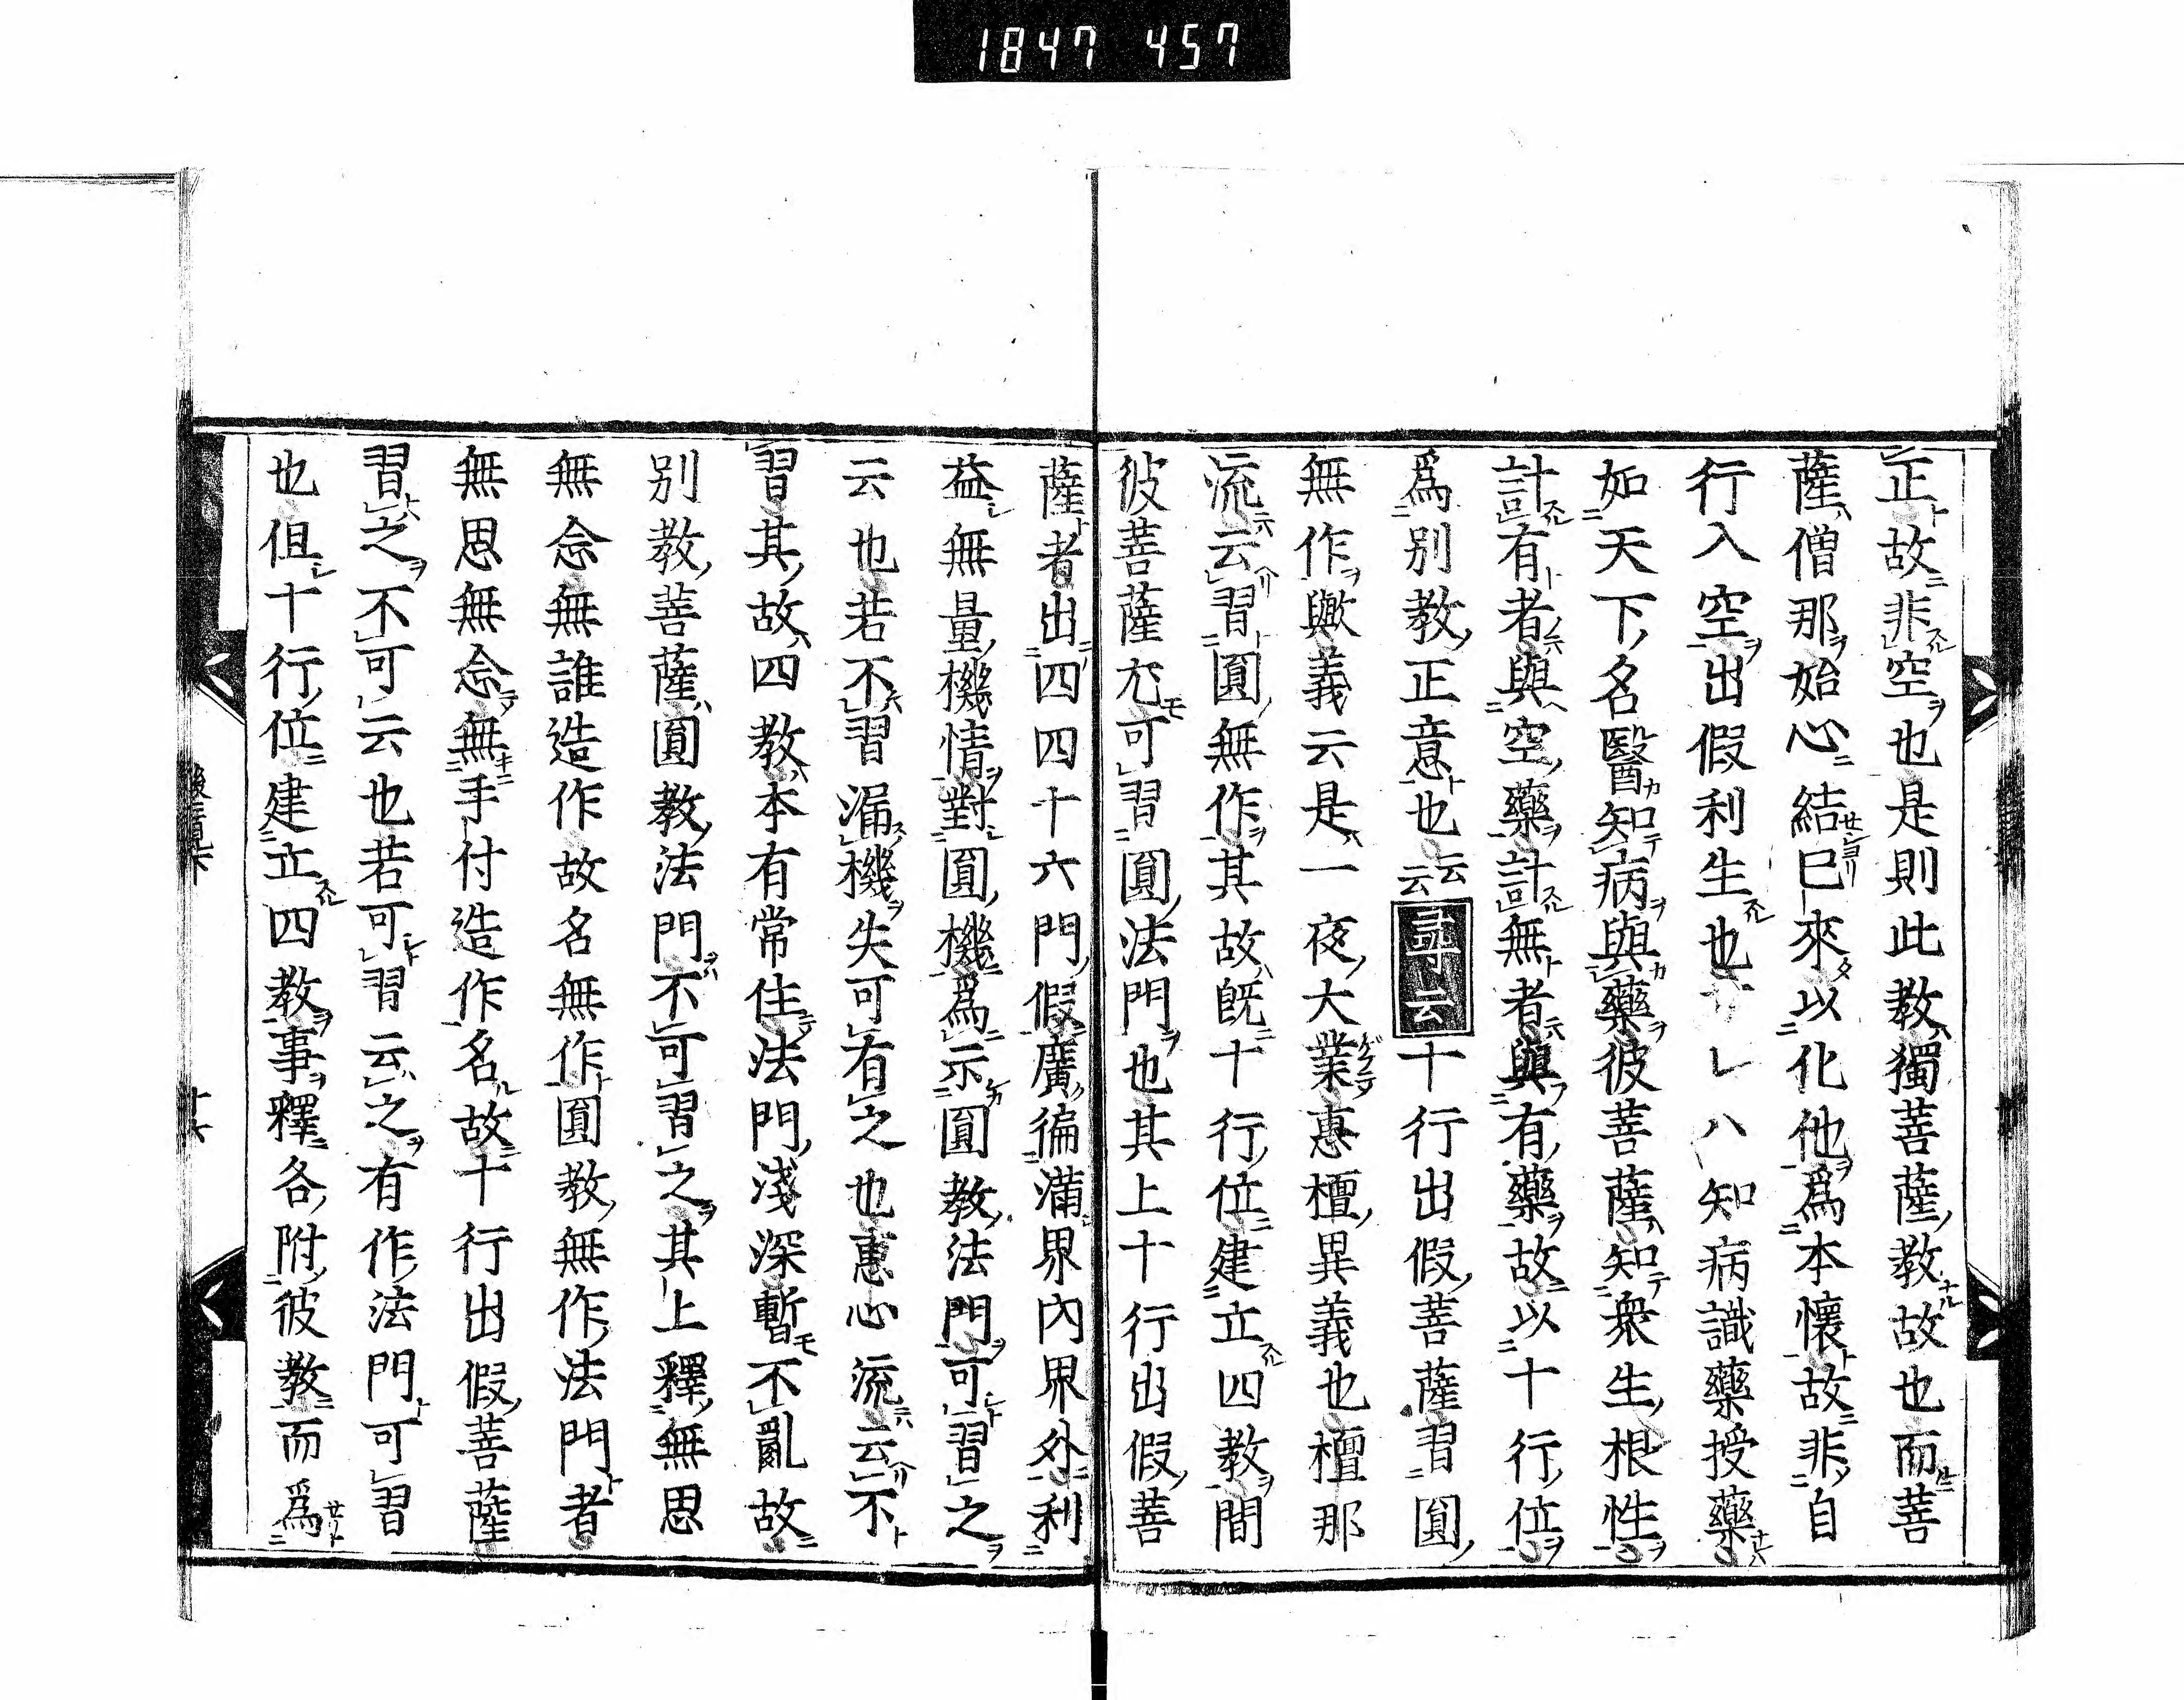 1847 457
正故非空也是則此教獨菩薩教故也而菩
薩僧那始心結已來以化他爲本懷故非自
行入空出假利生也レハ知病識藥授藥
如天下名醫知病與藥彼菩薩知衆生根性
計有者與空藥計無者與有藥故以十行位
爲別教正意也云云尋云十行出假菩薩習圓
無作歟義云是一夜大業惠檀異義也檀那
流云習圓無作其故既十行位建立四教間
彼菩薩尤可習圓法門也其上十行出假菩
薩者出四四十六門假廣徧滿界內界外利
益無量機情對圓機爲示圓教法門可習之
云也若不習漏機失可有之也惠心流云不
習其故四教本有常住法門淺深暫不亂故
別教菩薩圓教法門不可習之其上釋無思
無念無誰造作故名無作圓教無作法門者
無思無念無手付造作名故十行出假菩薩
習之不可云也若可習云之有作法門可習
也但十行位建立四教事釋各附彼教而爲